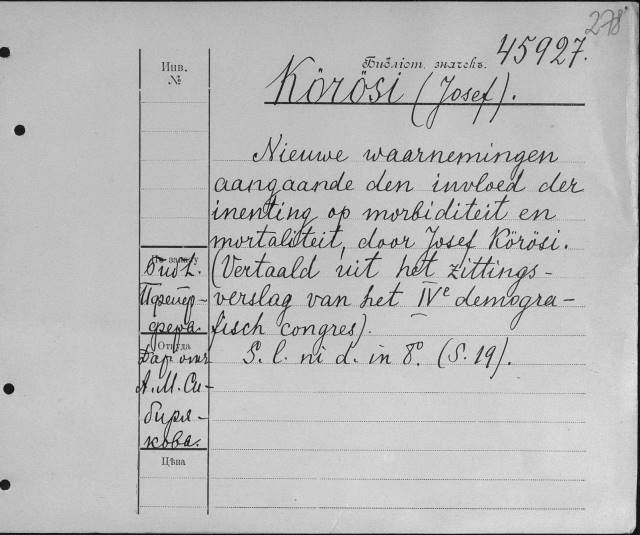 278
45927.
Инв.
№
Библіот. значекъ.
Körösi (Josef).
Nieuwe waarnemingen
aangaande den invloed der
inenting op morbiditeit en
mortaliteit, door Josef Körösi.
(Vertaald uit het zittings-
verslag van het IVe demogra-
fisch congres).
S. l. ni d. in 8º. (S. 19).
По заказу
Библ.
Пфейф-
фера.
Откуда
Дар отъ
А. М. Си-
биря-
кова.
Цѣна